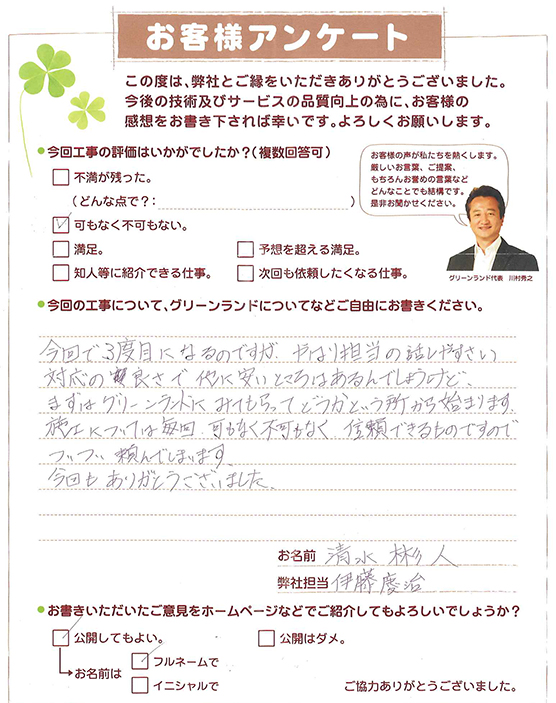 お客様アンケート
この度は、弊社とご縁をいただきありがとうございました。
今後の技術及びサービスの品質向上の為に、お客様の
感想をお書き下されば幸いです。よろしくお願いします。
●今回工事の評価はいかがでしたか?(複数回答可)
不満が残った。
(どんな点で?: )
可もなく不可もない。
満足。 予想を超える満足。
知人等に紹介できる仕事。 次回も依頼したくなる仕事。
お客様の声が私たちを熱くします。
厳しいお言葉、ご提案、
もちろんお誉めの言葉など
どんなことでも結構です。
是非お聞かせください。
グリーンランド代表 川村秀之
●今回の工事について、グリーンランドについてなどご自由にお書きください。
今回で3度目になるのですが、やはり担当の話しやすさい
対応の良さで他に安いところはあるんでしょうけど、
まずはグリーンランドにみてもらってどうかという所から始まります。
施工については毎回、可もなく不可もなく、信頼できるものですので
ついつい頼んでしまいます。
今回もありがとうございました。
お名前 清水 彬人
弊社担当 伊藤慶治
●お書きいただいたご意見をホームページなどでご紹介してもよろしいでしょうか?
公開してもよい。 公開はダメ。
お名前は フルネームで
イニシャルで
ご協力ありがとうございました。